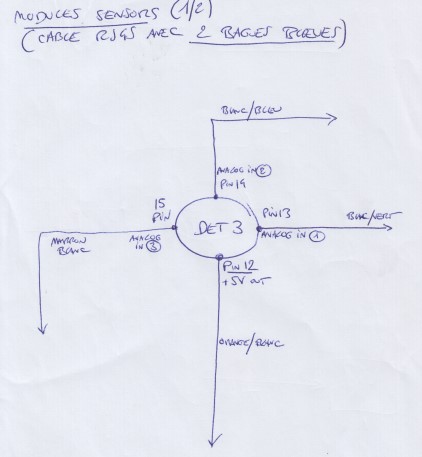 MODULES SENSORS (1/2)
(CABLE RJ45 AVEC 2 BAGUES BLEUES)
BLANC/BLEU
ANALOG IN ②
PIN 14
15
PIN
PIN 13
BLANC/VERT
DET 3
MARRON
BLANC
ANALOG
IN ③
ANALOG IN ①
PIN 12
+5V OUT
ORANGE/BLANC